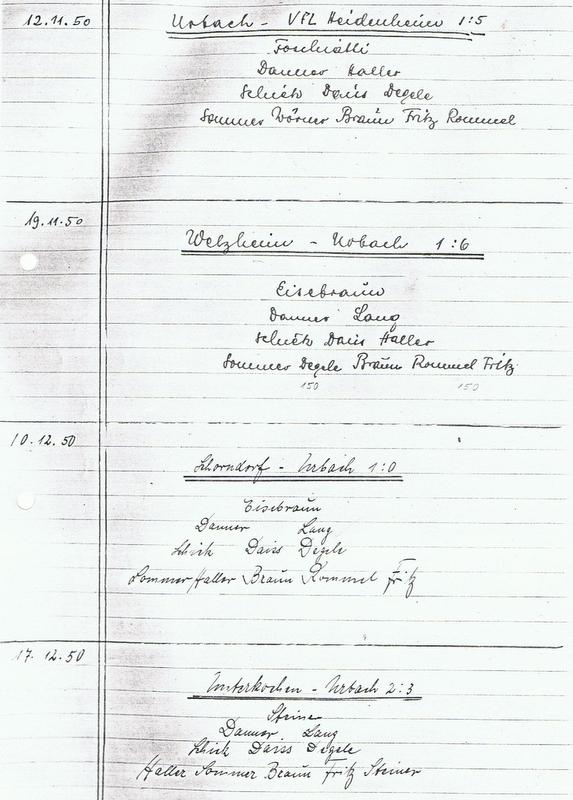 12.11.50 Urbach - VFL Heidenheim 1:5
Danner Haller
Schiek Daiss Degele
Sommer Wörner Braun Fritz Rommel
19.11.50
Welzheim - Urbach 1:6
Eisebraun
Danner Lang
Schiek Daiss Haller
Sommer Degele Braun Rommel Fritz
150 150
10.12.50
Schorndorf - Urbach 1:0
Eisebraun
Danner Lang
Schick Daiss Degele
Sommer Haller Braun Rommel Fritz
17.12.50
Unterkochen - Urbach 2:3
Danner Lang
Schick Daiss Degele
Haller Sommer Braun Fritz Steiner